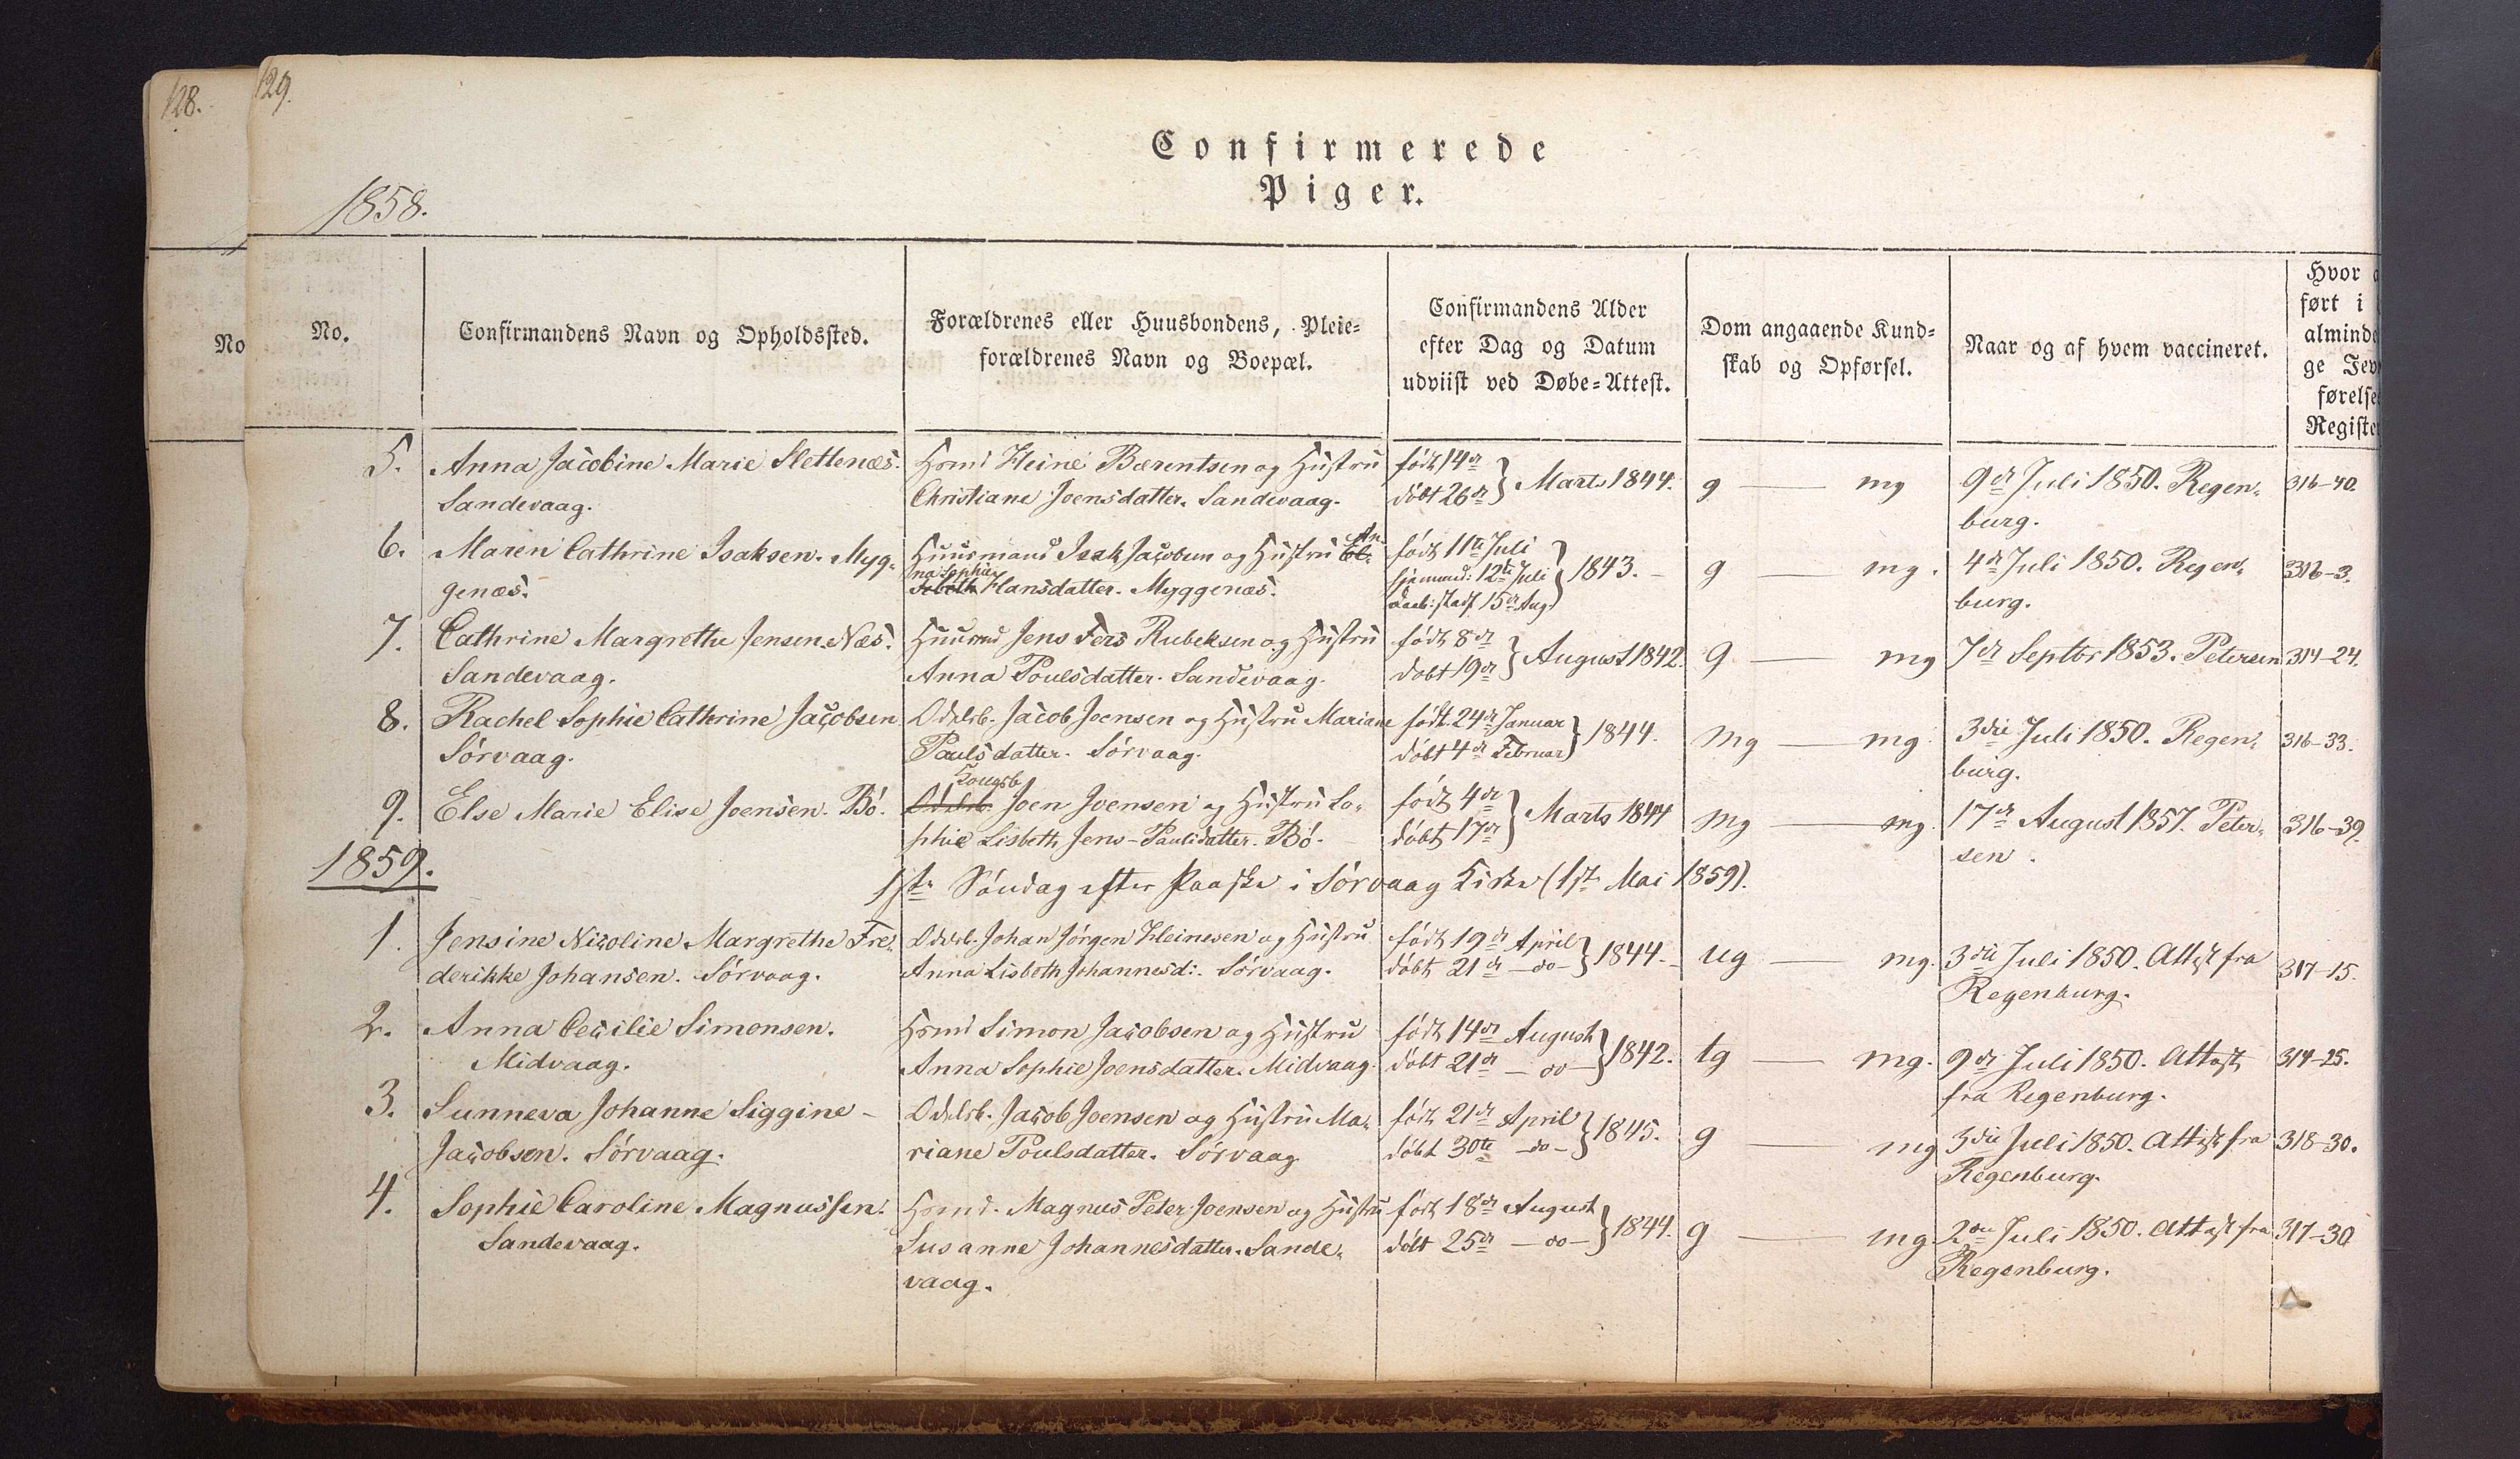 128.
129.
Confirmerede
Piger.
1858.
No
No.
Confirmandens Navn og Opholdssted.
Forældrenes eller Huusbondens, Pleie=
forældrenes Navn og Boepæl.
Confirmandens Alder
efter Dag og Datum
udviist ved Døbe=Attest.
Dom angaaende Kund=
skab og Opførsel.
Naar og af hvem vaccineret.
Hvor
ført i
alminde
ge Jev
førelse
Registe
5. Anna Jacobine Marie Slettenæs. Hsmd Heine Bærentsen og Hustru født 14de } Marts 1844. g — mg 9de Juli 1850. Regen- 316-40.
Sandevaag. Christiane Joensdatter. Sandevaag. døbt 26de burg.
6. Maren Cathrine Isaksen. Myg- Huusmand Isak Jacobsen og Hustru An- El- født 11te Juli } 1843. g — mg. 4de Juli 1850. Regen- 316-3.
genæs. na Sophie Hansdatter. Myggenæs. hjemmed: 12te Juli burg.
daab: stadf 15de Aug.
7. Cathrine Margrethe Jensen. Næs. Huusmd Jens Fers Rubeksen og Hustru født 8de } August 1842. g — mg 7de Septbr 1853. Petersen 314-24.
Sandevaag. Anna Poulsdatter. Sandevaag. døbt 19de
8. Rachel Sophie Cathrine Jacobsen Odelsb. Jacob Joensen og Hustru Mariane født 24de Januar } 1844. mg — mg 3die Juli 1850. Regen- 316-33.
Sörvaag. Poulsdatter. Sörvaag. døbt 4de Februar burg.
9. Else Marie Elise Joensen. Bö. Kongsb Odelsb. Joen Joensen og Hustru So- født 4de } Marts 1844 mg — mg. 17de August 1857. Peter- 316-39.
phie Lisbeth Jens-Paulsdatter. Bö. døbt 17de sen.
1859.
1ste Söndag efter Paaske i Sörvaag Kirke (1ste Mai 1859).
1. Jensine Nicoline Margrethe Fre- Odelsb. Johan Jörgen Heinesen og Hustru født 19de April } 1844. ug — mg. 3die Juli 1850. Attest fra 317-15.
derikke Johansen. Sörvaag. Anna Lisbeth Johannesd:. Sörvaag. døbt 21de — do — Regenburg.
2. Anna Cecilie Simonsen. Hsmd Simon Jacobsen og Hustru født 14de August } 1842. tg — mg. 9de Juli 1850. Attest 314-25.
Midvaag. Anna Sophie Joensdatter. Midvaag. døbt 21de — do — fra Regenburg.
3. Sunneva Johanne Siggine - Odelsb. Jacob Joensen og Hustru Ma- født 21de April } 1845. g — mg 3die Juli 1850. Attest fra 318-30.
Jacobsen. Sörvaag. riane Poulsdatter. Sörvaag døbt 30te — do — Regenburg.
4. Sophie Caroline Magnussen. Hsmd. Magnus Peter Joensen og Hustru født 18de August } 1844. g — mg. 2den Juli 1850. Attest fra 317-30
Sandevaag. Susanne Johannesdatter. Sande- døbt 25de — do — Regenburg.
vaag.